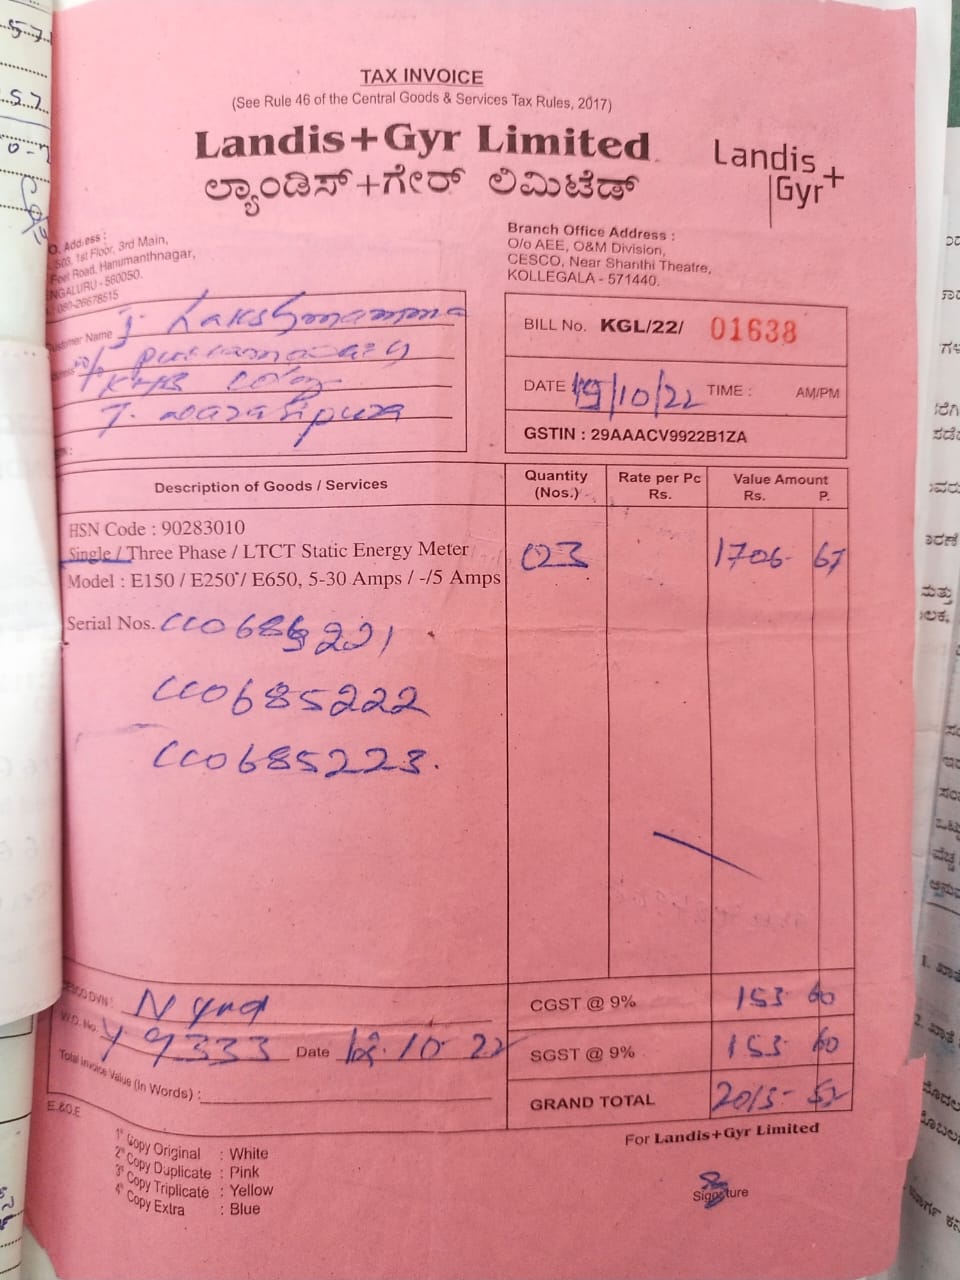 TAX INVOICE
(See Rule 46 of the Central Goods & Services Tax Rules, 2017)
Landis+Gyr Limited
ಲ್ಯಾಂಡಿಸ್+ಗೇರ್ ಲಿಮಿಟೆಡ್
Landis+
Gyr
O. Address :
503, 1st Floor, 3rd Main,
Feet Road, Hanumanthnagar,
NGALURU - 560050.
080-26678515
Branch Office Address :
O/o AEE, O&M Division,
CESCO, Near Shanthi Theatre,
KOLLEGALA - 571440.
Customer Name J. Lakshmamma
KHB Colony
T. Narasipura
BILL No. KGL/22/ 01638
DATE 19/10/22 TIME : AM/PM
GSTIN : 29AAACV9922B1ZA
Description of Goods / Services
Quantity (Nos.)
Rate per Pc Rs.
Value Amount
Rs. P.
HSN Code : 90283010
Single / Three Phase / LTCT Static Energy Meter 03 1706- 67
Model : E150 / E250 / E650, 5-30 Amps / -/5 Amps
Serial Nos. CC0685221
CC0685222
CC0685223.
CESCO DVN : N
CGST @ 9% 153 60
W.O. No. 9333 Date 10 22
SGST @ 9% 153 60
Total Invoice Value (In Words) :
GRAND TOTAL 2013- 52
E.&O.E
For Landis+Gyr Limited
1st Copy Original : White
2nd Copy Duplicate : Pink
3rd Copy Triplicate : Yellow
4th Copy Extra : Blue
Signature